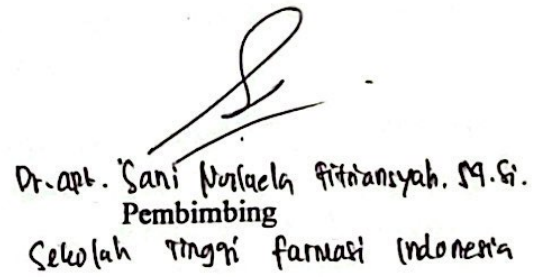 Dr. apt. Sani Nurlaela Fitriansyah. M.Si.
Pembimbing
Sekolah Tinggi Farmasi Indonesia